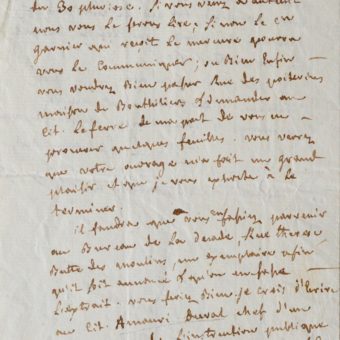 du 30 pluviose. Si vous venez à
nous vous le ferons lire; si non le cn
garnier qui reçoit le mercure pourra
vous le Communiquer; ou Bien Enfin
vous voudrez Bien passer Rue des poitevins
maison de Bouthilier & demander au
Cit. Leferre de ma part de vous en
procurer quelques feuilles. vous verrez
que votre ouvrage m'a fait un grand
plaisir et que je vous exhorte à le
terminer.
il faudra que vous fassiez parvenir
au Bureau de la Decade, Rue therese
Butte des moulins, un exemplaire afin
qu'il soit annoncé & qu'on en fasse
L'extrait. vous feriez Bien je crois d'Ecrire
au Cit. Amauri Duval chef d'une
L'instruction publique